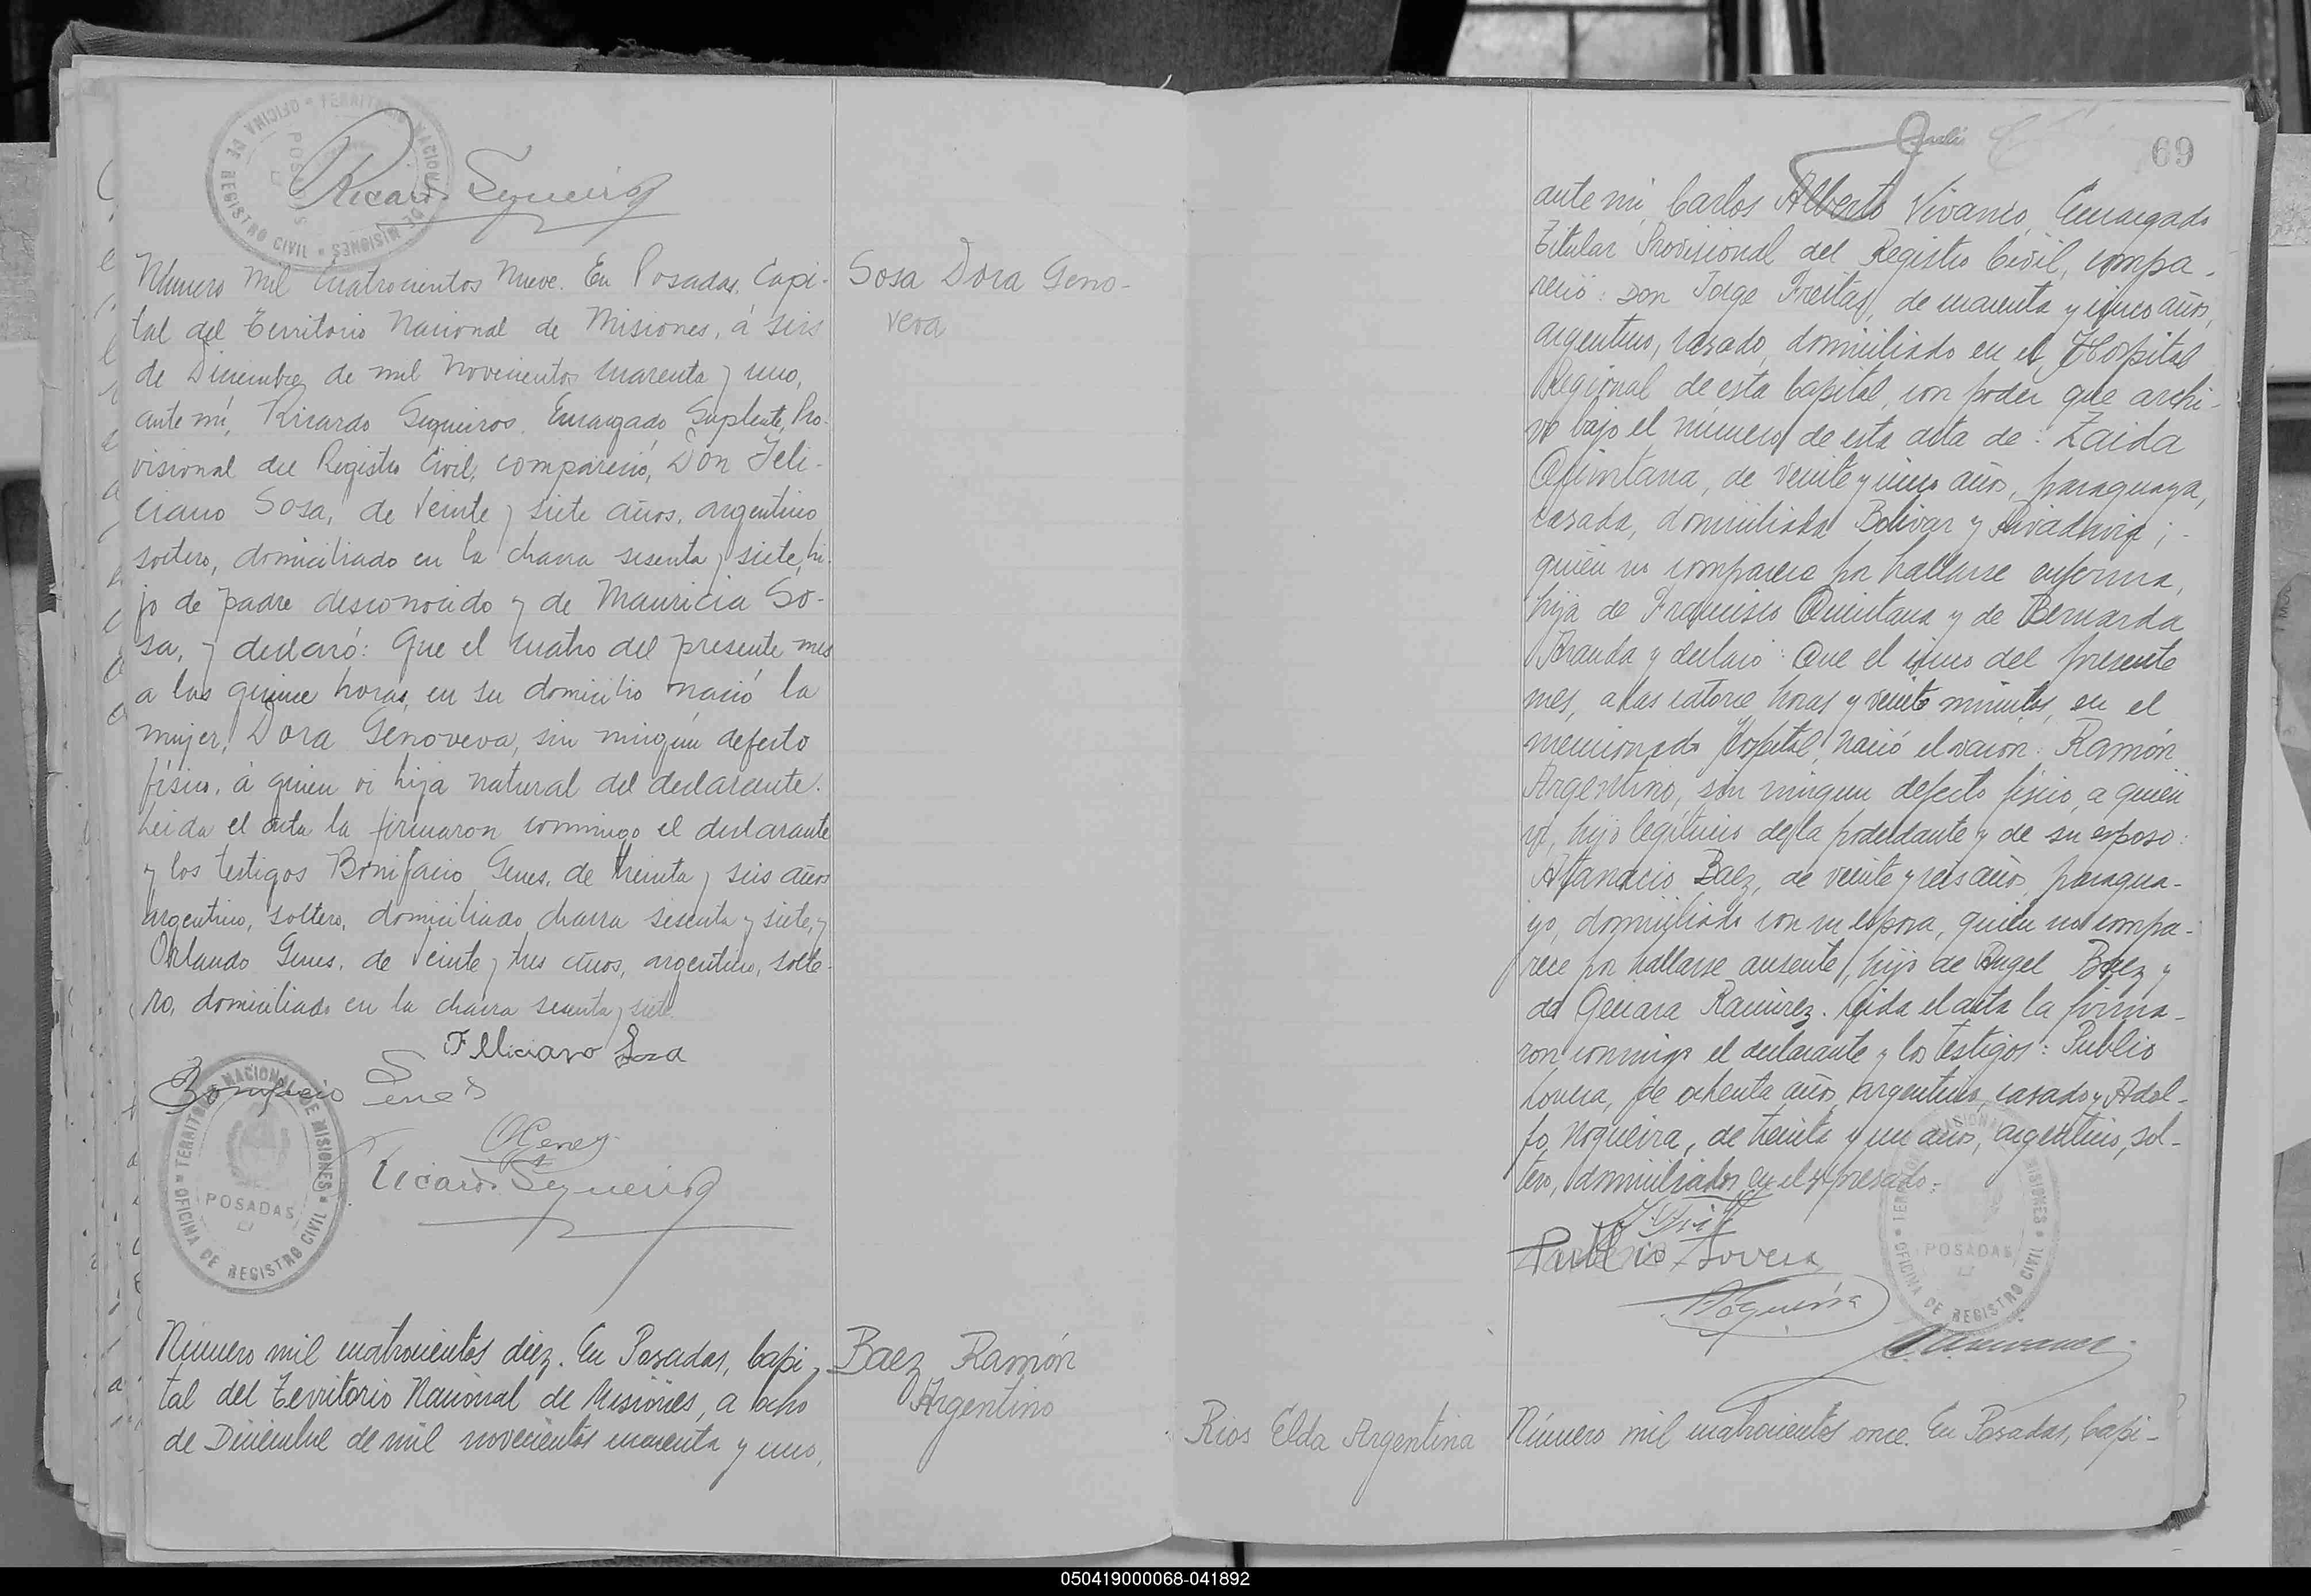 Ricardo Sequeiros
Número mil cuatrocientos nueve. En Posadas, Capi-
tal del Territorio Nacional de Misiones, á seis
de Diciembre de mil novecientos cuarenta y uno,
ante mí, Ricardo Sequeiros, Encargado Suplente Pro-
visional del Registro Civil, compareció, Don Feli-
ciano Sosa, de veinte y siete años, argentino
soltero, domiciliado en la chacra sesenta y siete, hi-
jo de padre desconocido y de Mauricia So-
sa, y declaró: Que el cuatro del presente mes
a las quince horas, en su domicilio nació la
mujer, Dora Genoveva, sin ningún defecto
físico, á quien vi hija natural del declarante.
Leida el acta la firmaron conmigo el declarante
y los testigos Bonifacio Genes, de treinta y seis años
argentino, soltero, domiciliado chacra sesenta y siete, y
Orlando Genes, de veinte y tres años, argentino, solte-
ro, domiciliado en la chacra sesenta y siete
Feliciano Sosa
Bonifacio Genes
OGenes
Ricardo Sequeiros
TERRITORIO NACIONAL DE MISIONES
POSADAS
OFICINA DE REGISTRO CIVIL
Número mil cuatrocientos diez. En Posadas, Capi-
tal del Territorio Nacional de Misiones, a ocho
de Diciembre de mil novecientos cuarenta y uno,
Sosa Dora Geno-
veva
Baez Ramón
Argentino
69
ante mi, Carlos Alberto Vivanco, Encargado
Titular Provisional del Registro Civil, compa-
reció: Don Jorge Freitas, de cuarenta y cinco años,
argentino, casado, domiciliado en el Hospital
Regional de esta Capital, con poder que archi-
vo bajo el número de esta acta de: Zaida
Quintana, de veinte y cinco años, paraguaya,
casada, domiciliada Bolivar y Rivadavia;
quien no comparece por hallarse enferma,
hija de Francisco Quintana y de Bernarda
Aranda y declaró: Que el cinco del presente
mes, a las catorce horas y veinte minutos, en el
mencionado Hospital, nació el varon: Ramón
Argentino, sin ningun defecto fisico, a quien
vi, hijo legitimo de la poderdante y de su esposo:
Atanacio Baez, de veinte y seis años, paragua-
yo, domiciliado con su esposa, quien no compa-
rece por hallarse ausente, hijo de Angel Baez y
de Genara Ramirez. Leida el acta la firma-
ron conmigo el declarante y los testigos: Publio
Lovera, de ochenta años, argentino, casado y Adol-
fo Nogueira, de treinta y un años, argentino, sol-
tero, domiciliados en el expresado.
Publio Lovera
Nogueira
TERRITORIO NACIONAL DE MISIONES
POSADAS
OFICINA DE REGISTRO CIVIL
Rios Elda Argentina
Número mil cuatrocientos once. En Posadas, Capi-
050419000068-041892